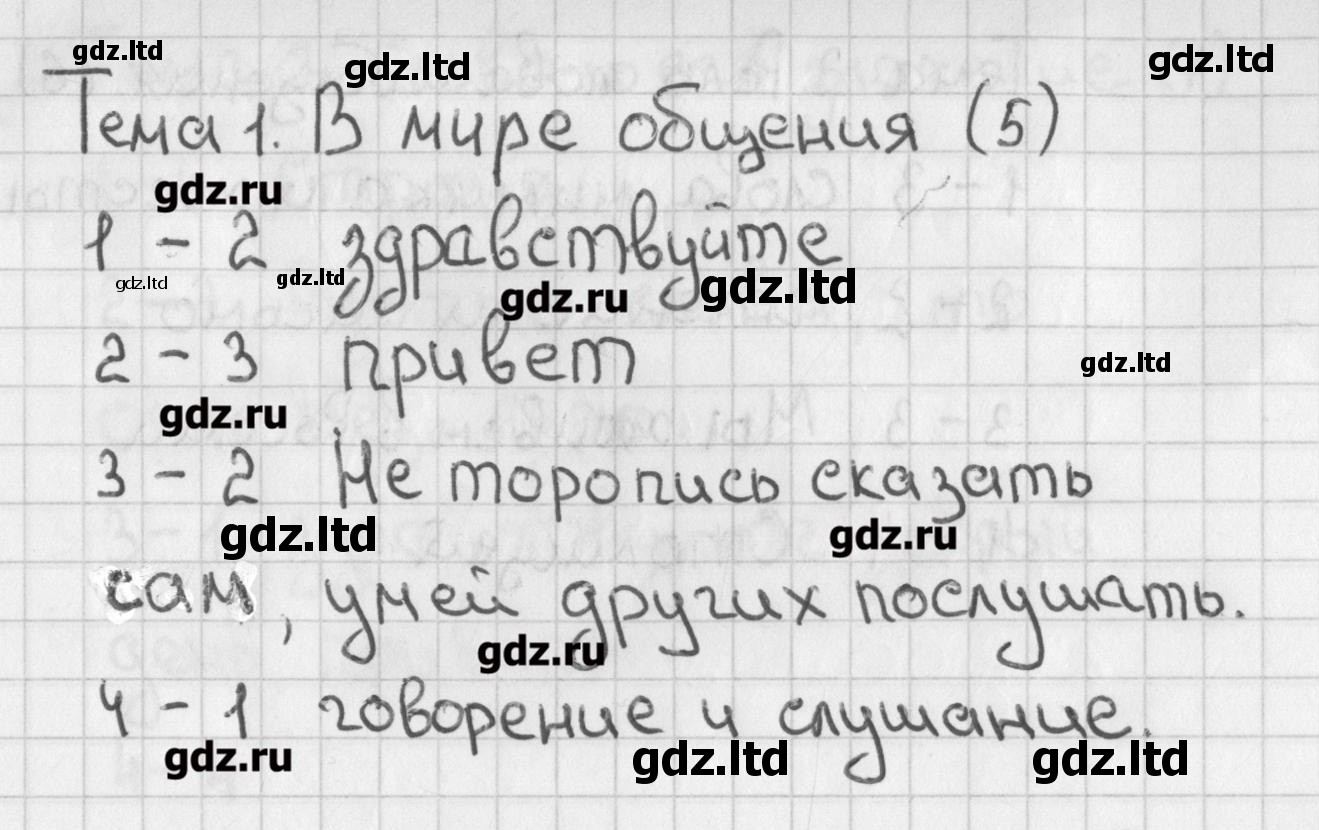 gdz.ltd gdz.ltd gdz.ltd
Тема 1. В мире общения (5)
gdz.ru
1 - 2 здравствуйте
gdz.ltd gdz.ltd gdz.ru gdz.ltd
2 - 3 привет
gdz.ltd
gdz.ru
3 - 2 Не торопись сказать
gdz.ltd gdz.ru
сам, умей других послушать.
gdz.ru
4 - 1 говорение и слушание.
gdz.ru gdz.ltd gdz.ltd